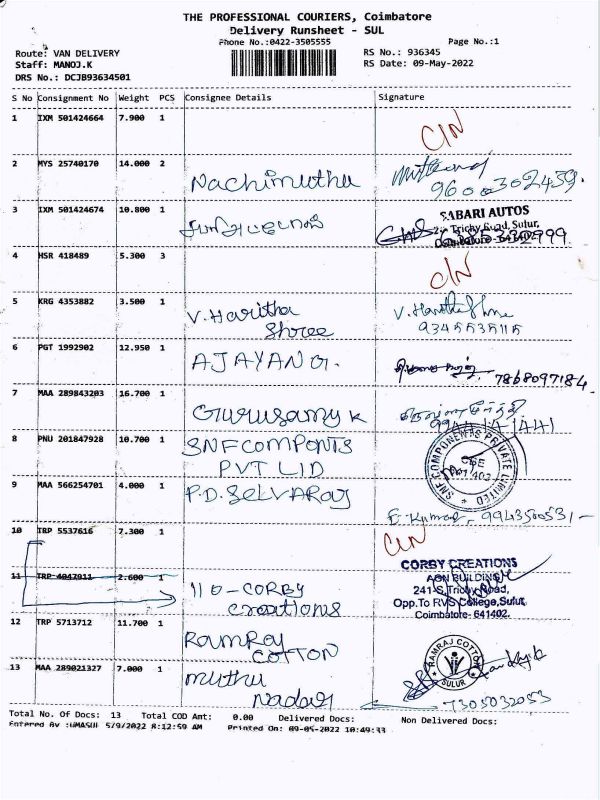 THE PROFESSIONAL COURIERS, Coimbatore
Delivery Runsheet - SUL
Phone No.:0422-3505555
Page No.:1
Route: VAN DELIVERY
RS No.: 936345
Staff: MANOJ.K
RS Date: 09-May-2022
DRS No.: DCJB93634501
S No Consignment No Weight PCS Consignee Details Signature
1 IXM 501424664 7.900 1
C/N
2 MYS 25740170 14.000 2
Nachimuthu
9600302459.
3 IXM 501424674 10.800 1
SABARI AUTOS
Trichy Road, Sulur,
Coimbatore- 641402.
4 HSR 418489 5.300 3
C/N
5 KRG 4353882 3.500 1
V. Haritha
Shree
V. Haritha Shree
9345535115
6 PGT 1992902 12.950 1
AJAYAN G.
7868097184.
7 MAA 289843203 16.700 1
Gurusamy K
8 PNU 201847928 10.700 1
SNF COMPONTS
PVT LID
SNF COMPONENTS PRIVATE LIMITED
CBE
641 402
9 MAA 566254701 4.000 1
P.D. SELVARAJ
E. Kumar, 9943500531
10 TRP 5537616 7.300 1
C/N
11 TRP 4047911 2.600 1
110-CORBY
creations
CORBY CREATIONS
AGN BUILDING
241-S, Trichy Road,
Opp.To RVS College, Sulur,
Coimbatore- 641402.
12 TRP 5713712 11.700 1
RAMRAJ
COTTON
RAMRAJ COTTON
SULUR
13 MAA 289021327 7.000 1
Muthu
Nadar
7305032053
Total No. Of Docs: 13 Total COD Amt: 0.00 Delivered Docs: Non Delivered Docs:
Entered By :UMASUL 5/9/2022 8:12:59 AM Printed On: 09-05-2022 10:49:33